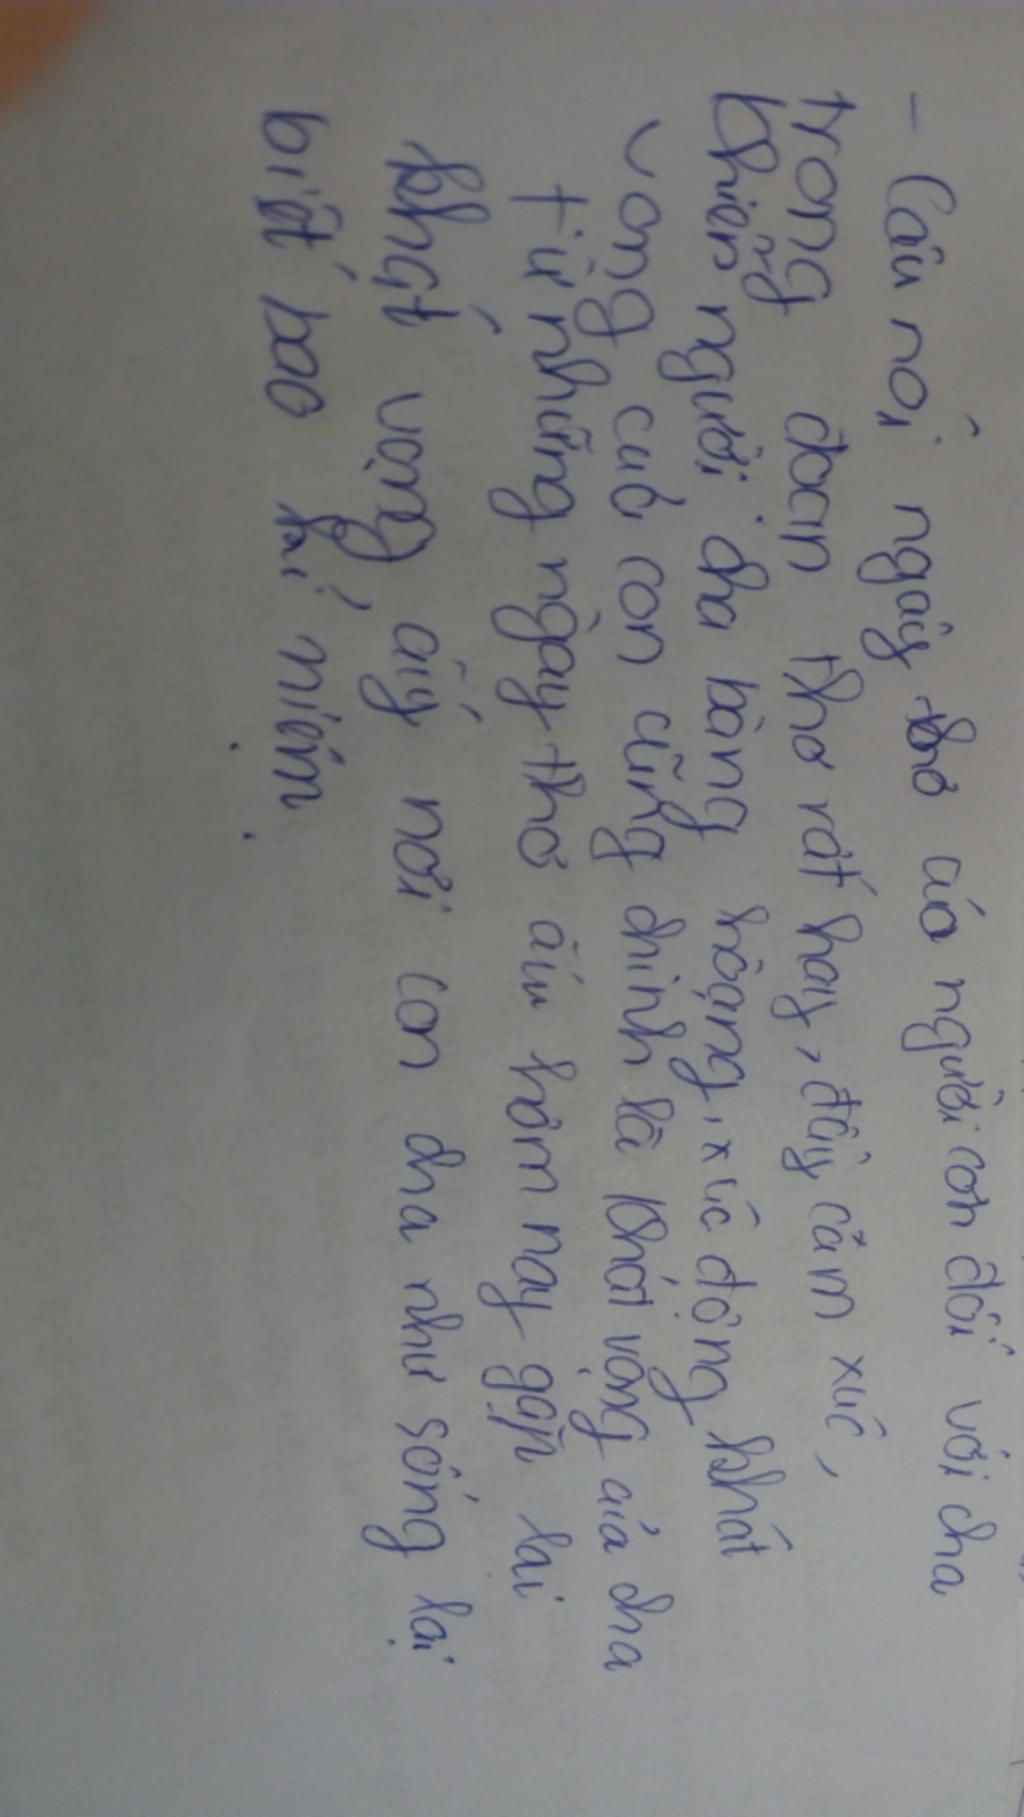 - Câu nói ngây thơ của người con đối với cha
trong đoạn thơ rất hay, đầy cảm xúc,
khiến người cha bàng hoàng, xúc động khát
vọng của con cũng chính là khát vọng của cha
từ những ngày thơ ấu hôm nay gặp lại
khát vọng ấy nơi con cha như sống lại
biết bao kỉ niệm.